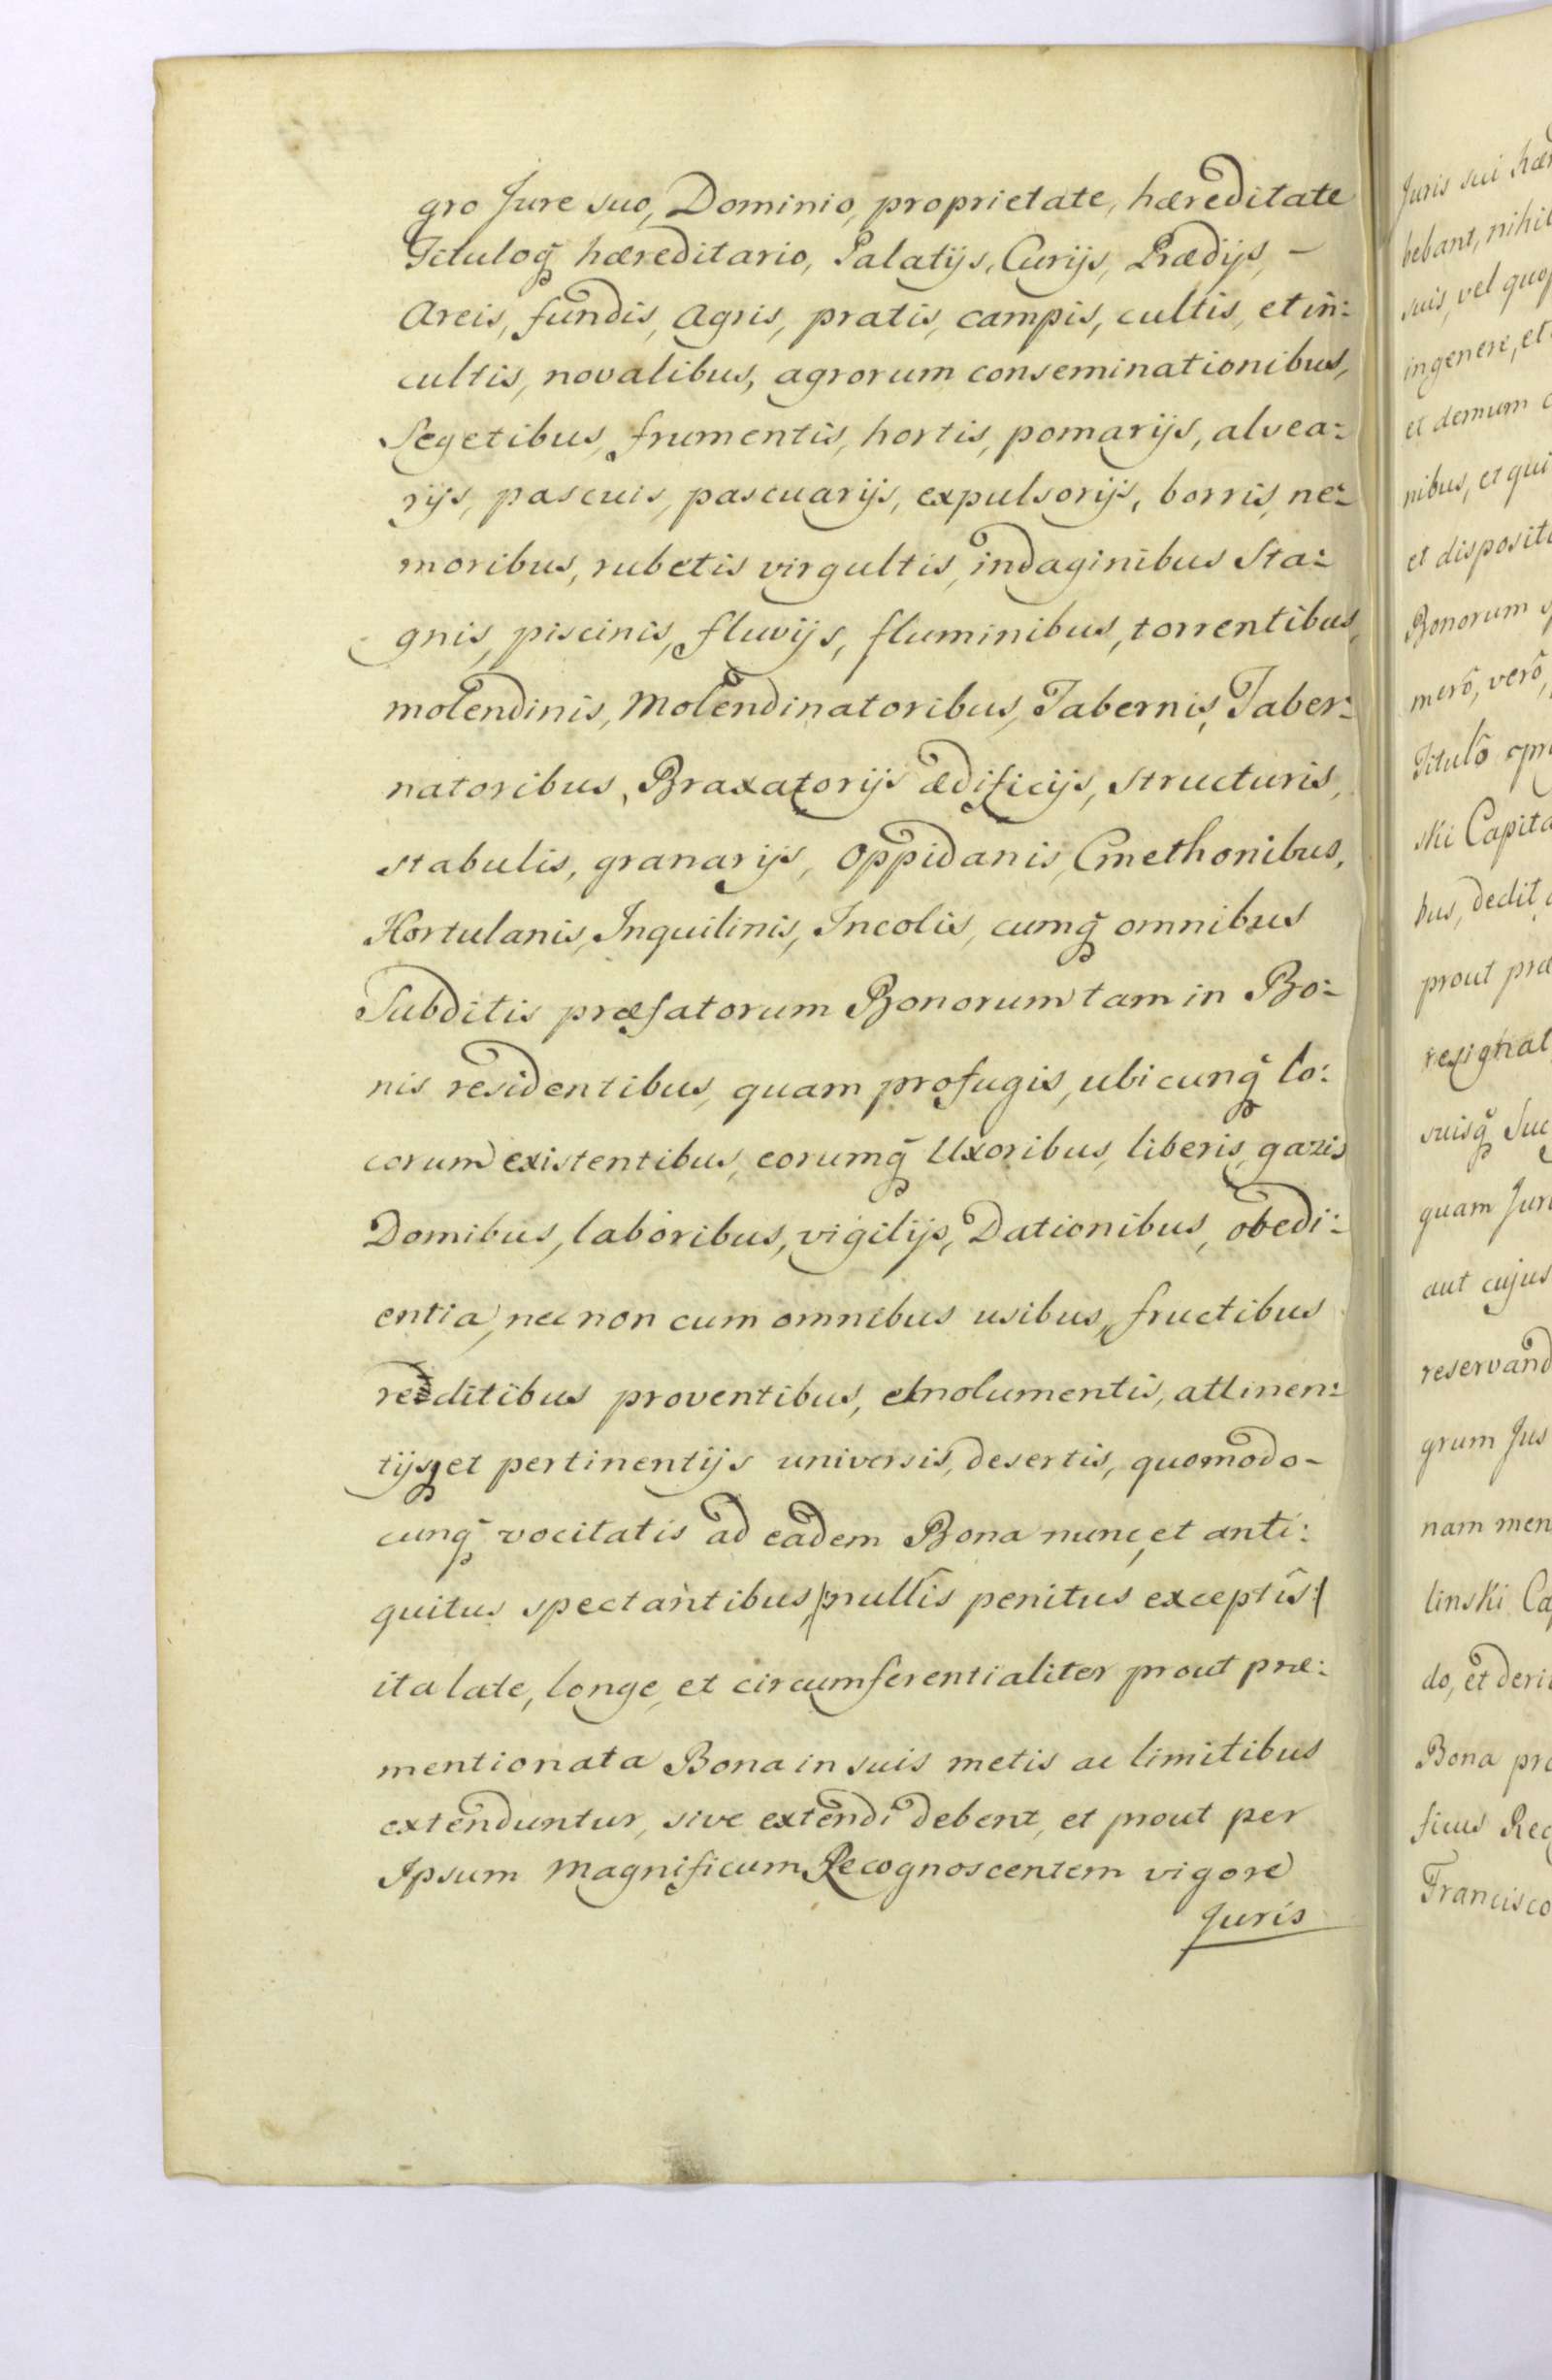 gro Jure suo, Dominio, proprietate, hæreditate
Tituloq̃ hæreditario, Palatijs, Curijs, Prædijs, -
Areis, fundis, Agris, pratis, campis, cultis, et in:
cultis, novalibus, agrorum conseminationibus,
Segetibus, frumentis, hortis, pomarijs, alvea:
rijs, pascuis, pascuarijs, expulsorijs, borris, ne:
moribus, rubetis virgultis, indaginibus Sta:
gnis, piscinis, fluvijs, fluminibus, torrentibus,
molendinis, Molendinatoribus, Tabernis, Taber:
natoribus, Braxatorijs ædificijs, structuris,
stabulis, granarijs, Oppidanis, Cmethonibus,
Hortulanis, Inquilinis, Incolis, cumq̃ omnibus
Subditis præfatorum Bonorum tam in Bo:
nis residentibus, quam profugis, ubicunq̃ lo:
corum existentibus, eorumq̃ Uxoribus, liberis, gazis
Domibus, laboribus, vigilijs, Dationibus, obedi:
entia, nec non cum omnibus usibus, fructibus
redditibus proventibus, emolumentis, attinen:
tijsq̃ et pertinentijs universis, desertis, quomodo-
cunq̃ vocitatis ad eadem Bona nunc, et anti:
quitus spectantibus, /:nullîs penitus exceptîs:/
ita late, longe, et circumferentialiter prout præ:
mentionata Bona in suis metis ac limitibus
extenduntur, sive extendi debent, et prout per
Ipsum Magnificum Recognoscentem vigore
Juris
Juris sui
bebant, nihil
suis, vel
in genere, et
et demum
nibus, et qui
et disposit
Bonorum
merô, verô,
Titulô
ski Capita
bus, dedit,
prout præ
resignat
suisq̃ Suc
quam Juri
aut cujus
reservand
grum Jus
nam men
linski Ca
do, et deri
Bona pro
ficus Rec
Francisco